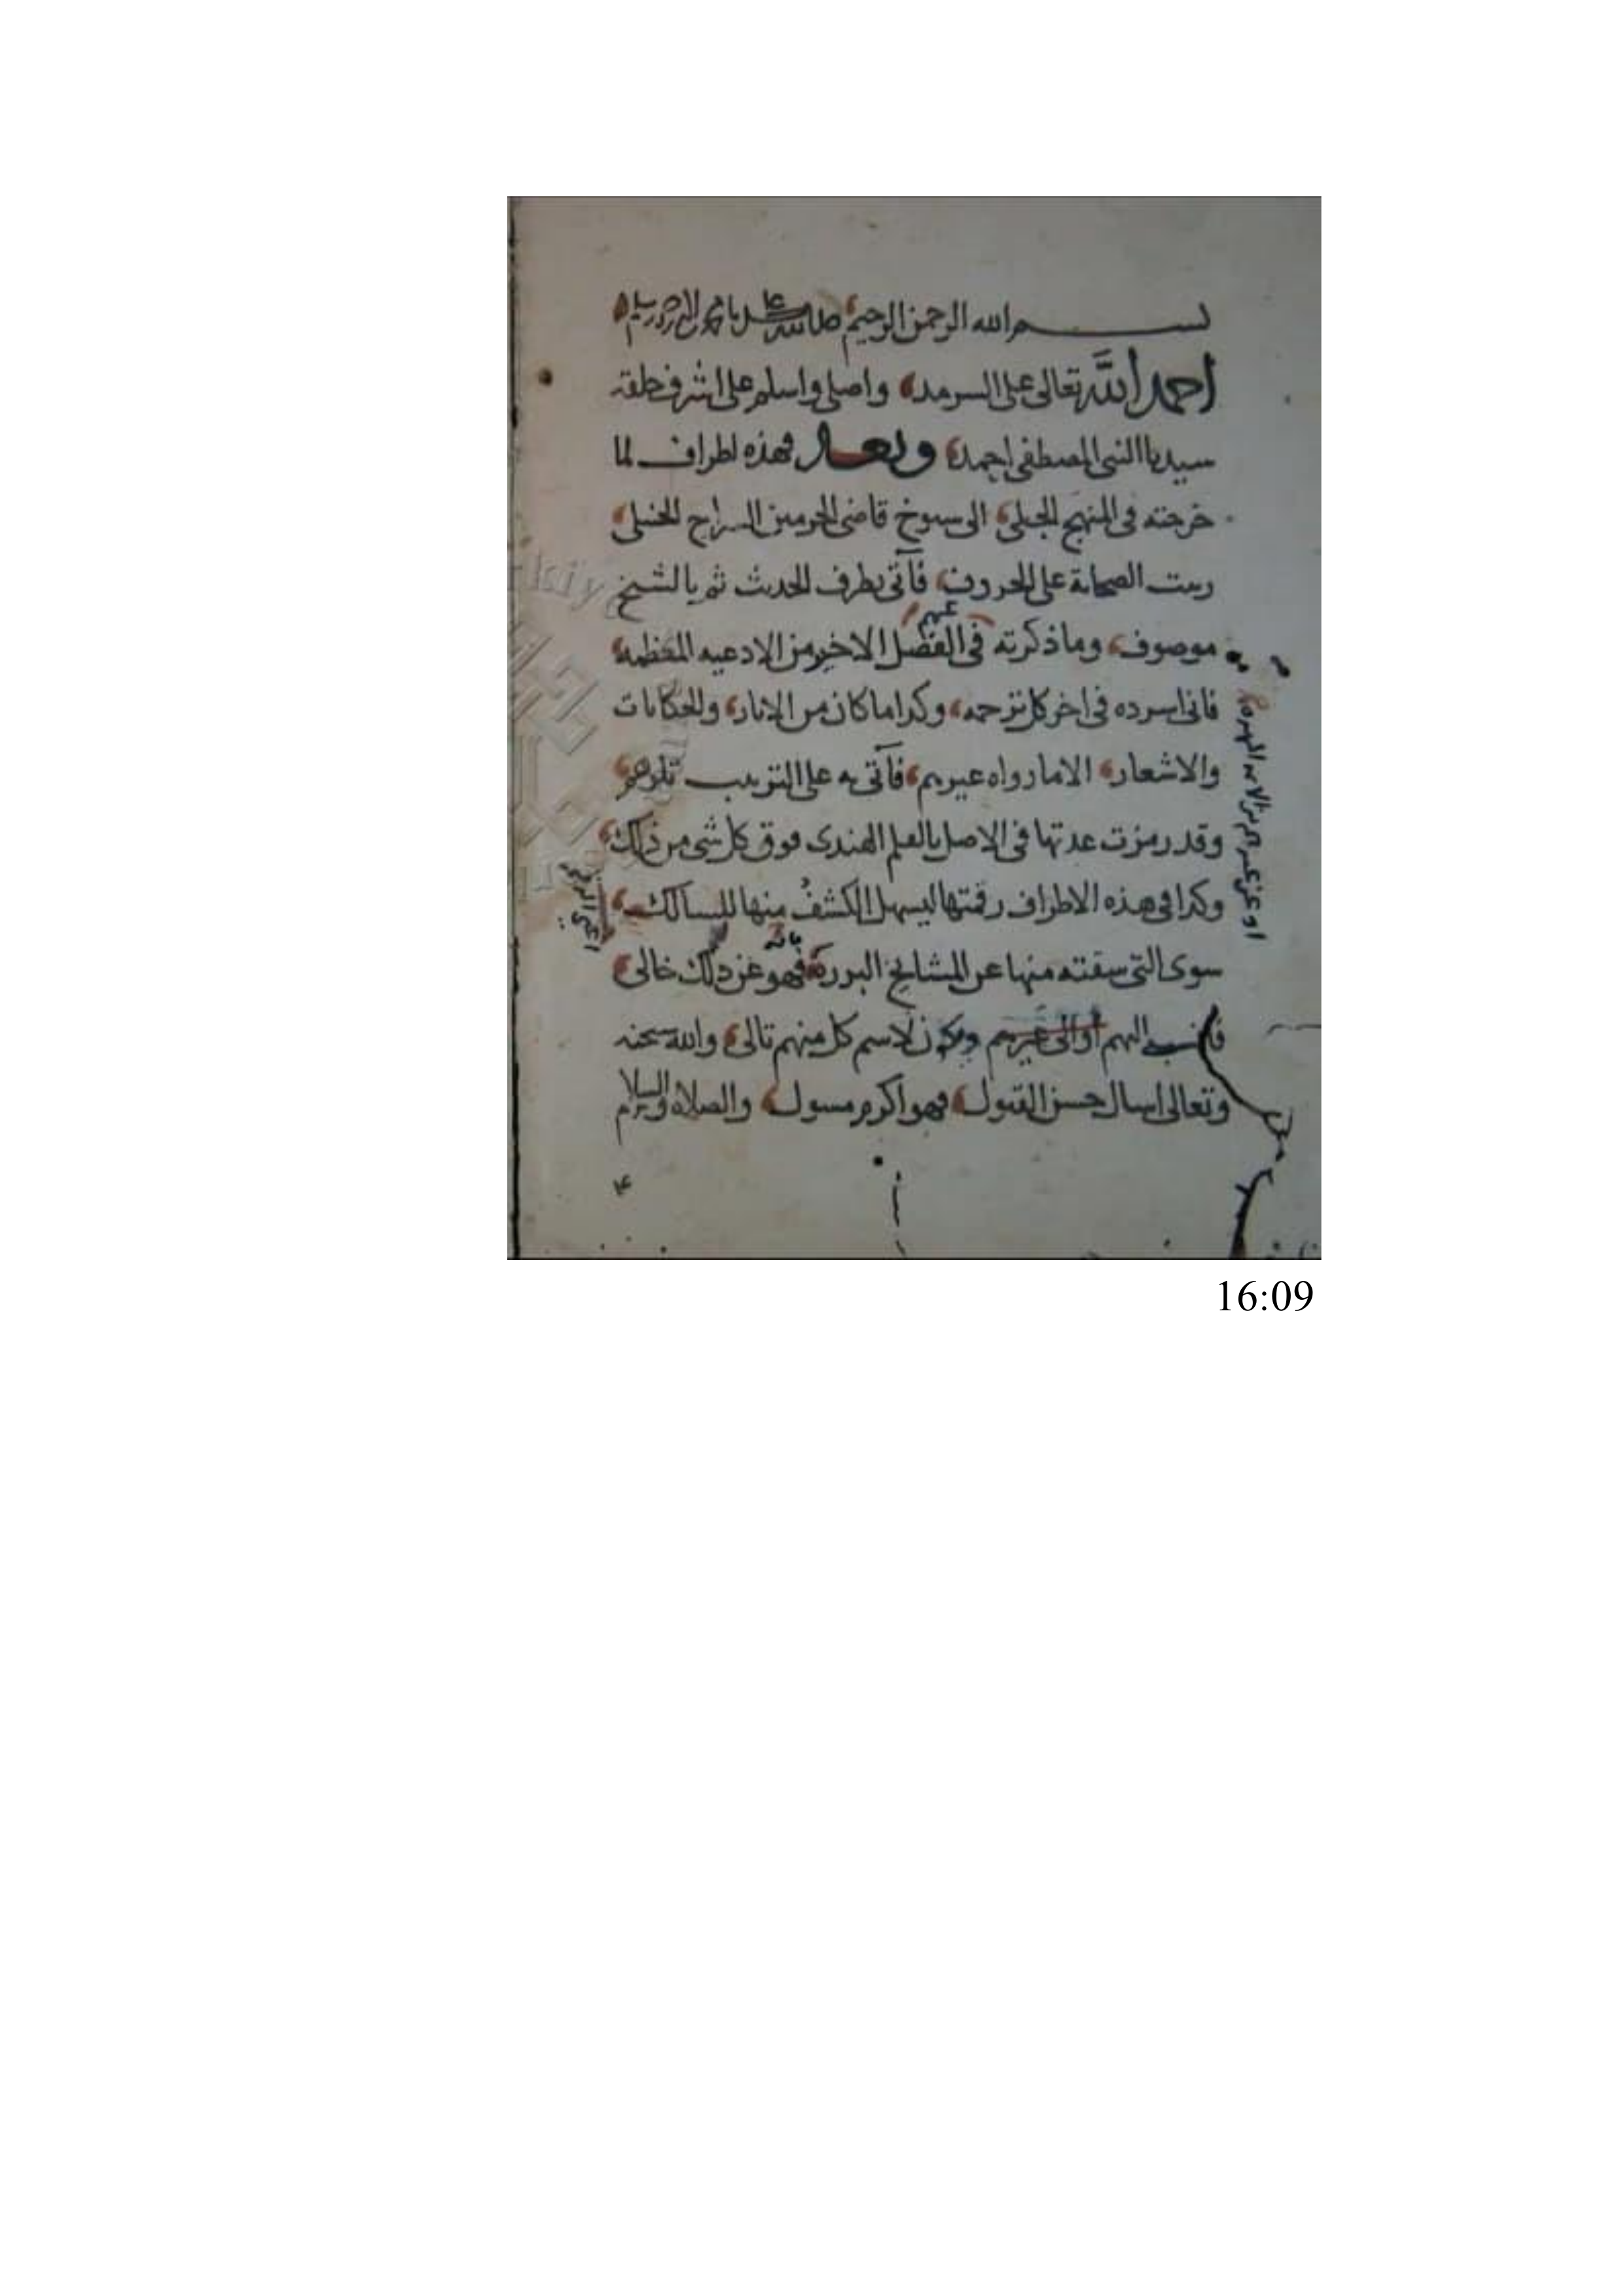 بسم الله الرحمن الرحيم صلى الله على سيدنا محمد وآله وسلم
احمد الله تعالى على السرمد واصلى واسلم على اشرف خلقه
سيدنا النبى المصطفى احمد وبعد فهذه اطراف لما
خرجته فى المنهج الجلى الى شيوخ قاضى الحرمين السراج الحنبلى
رتبت الصحابة على الحروف فآتى بطرف الحديث ثم بالشيخ
موصوف وما ذكرته عنهم فى الفصل الاخير من الادعيه المعظمه
فانى اسرده فى اخر كل ترجمه وكذا ما كان من الاثار والحكايات
والاشعار الا ما رواه غيرهم فآتى به على الترتيب
وقد رمزت عدتها فى الاصل بالقلم الهندى فوق كل شى من ذلك
وكذا فى هذه الاطراف رقمتها ليسهل الكشف منها للسالك
سوى التى سقته منها عن المشايخ البررة فهو عن ذلك خالى
اليهم او الى غيرهم لاسم كل منهم تالى والله سبحنه
وتعالى اسال حسن القبول فهو اكرم مسول والصلاة والسلام
16:09